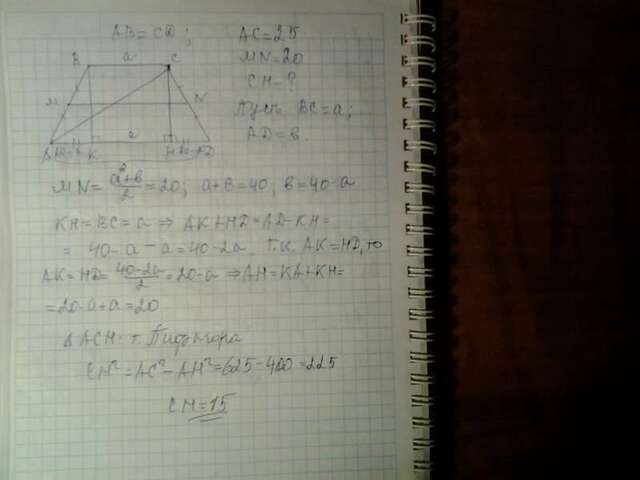 AB = CD; AC = 25
MN = 20
CH - ?
Пусть BC = a;
AD = в.
B a C
M N
A 20-a K a H 20-a D
MN = (a+в)/2 = 20; a+в = 40; в = 40-a
KH = BC = a ⇒ AK+HD = AD-KH =
= 40-a-a = 40-2a. Т.К. AK = HD, то
AK = HD = (40-2a)/2 = 20-a ⇒ AH = KA+KH =
= 20-a+a = 20
Δ ACH - т. Пифагора
CH² = AC² - AH² = 625-400 = 225
CH = 15